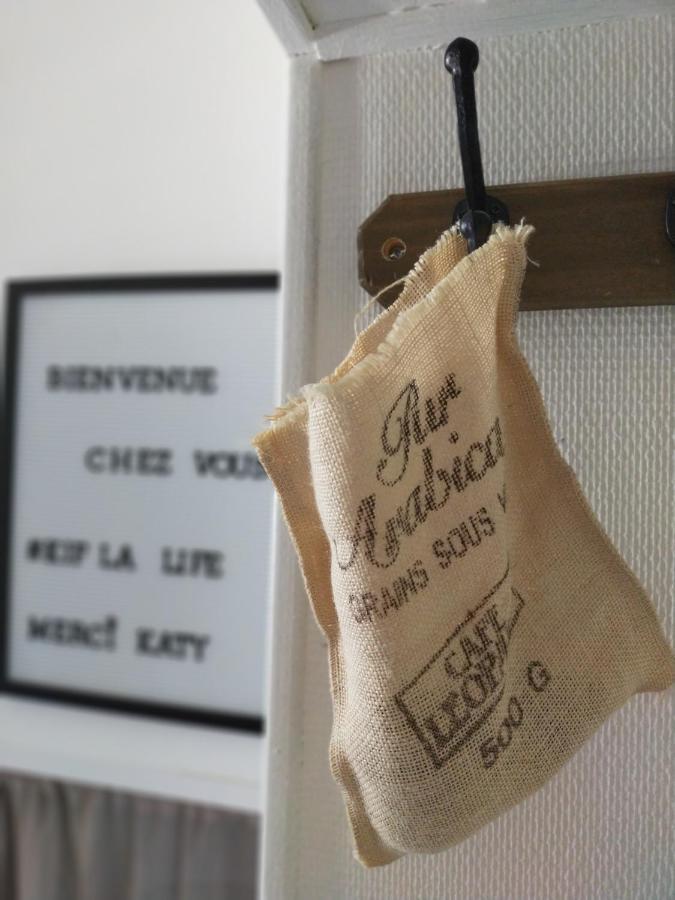 BIENVENUE
CHEZ VOUS
#KIF LA LIFE
MERCI KATY
Pur
Arabica
GRAINS SOUS
CAFE
500 G